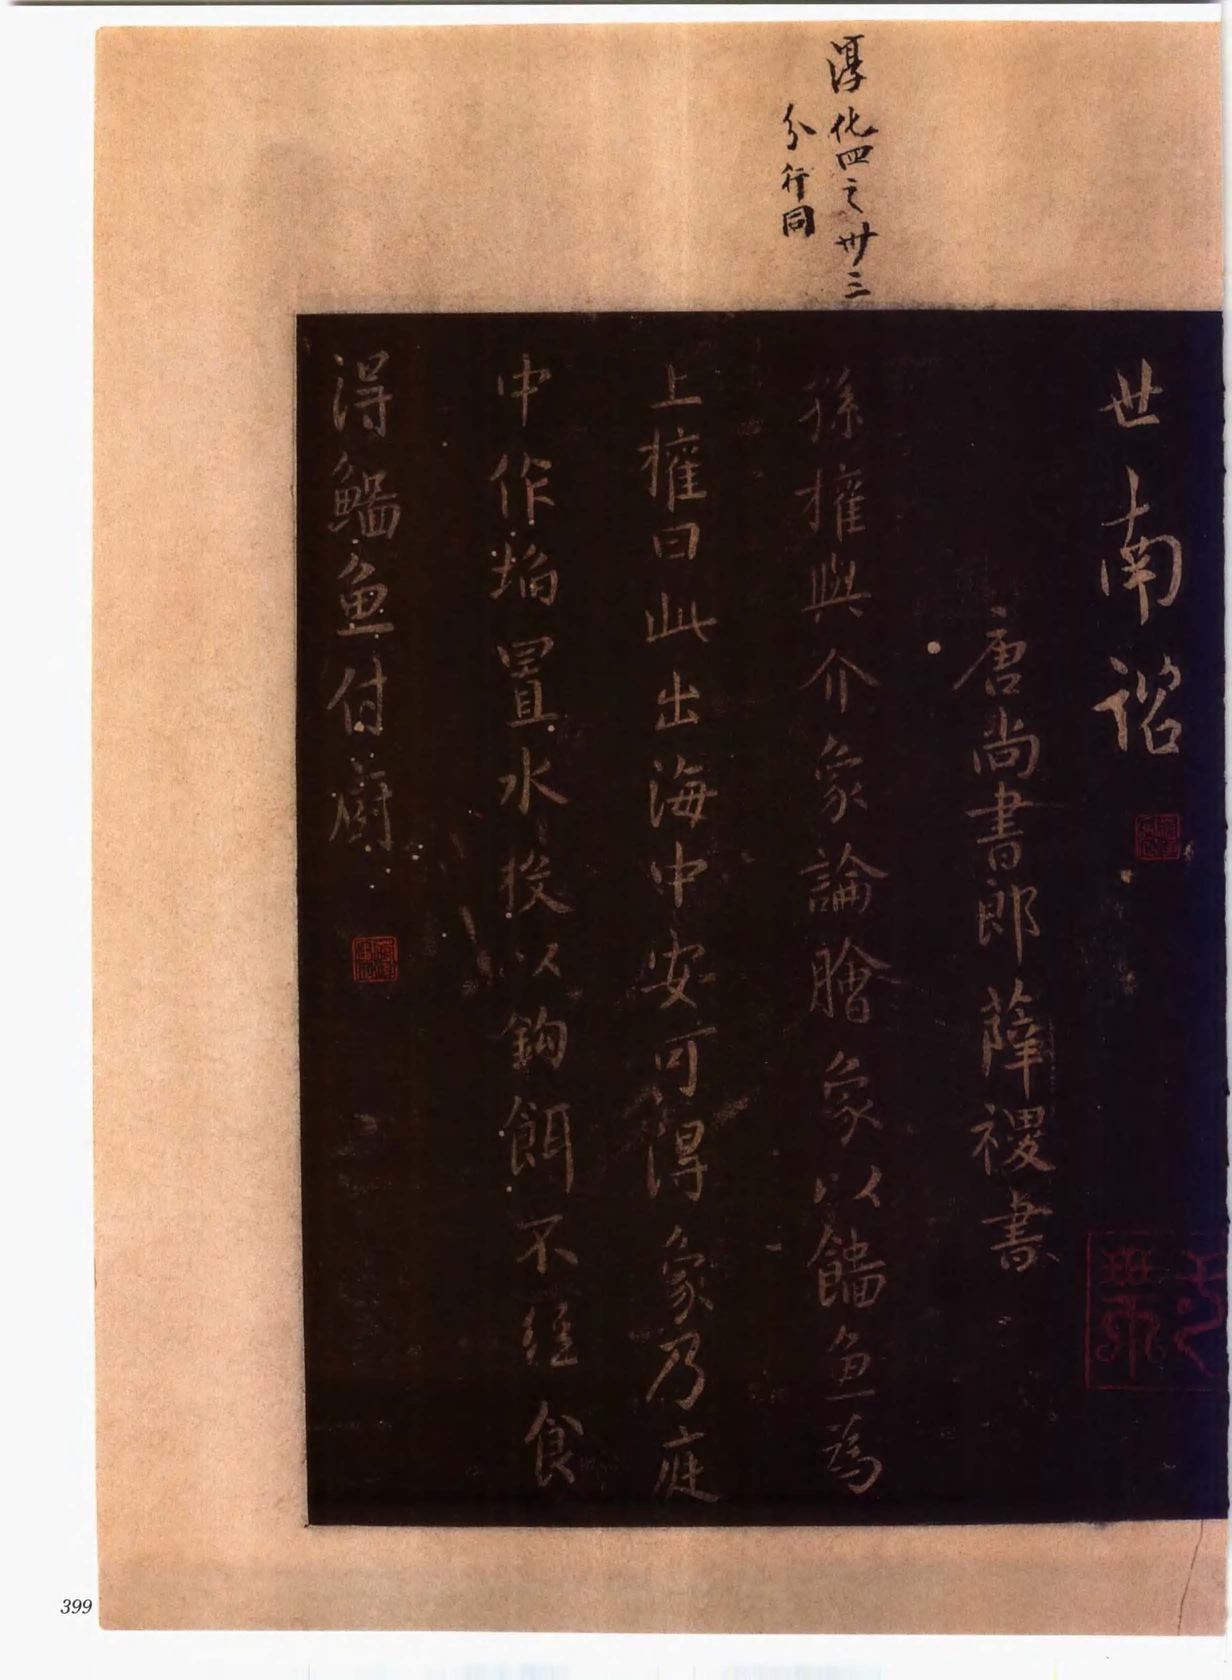 淳化四之卅三
分行同
世南諮
唐尚書郎薛稷書
孫權與介象論膾象以鯔魚為
上權曰此出海中安可得象乃庭
中作埳置水投以鈎餌不經食
得鯔魚付廚
399